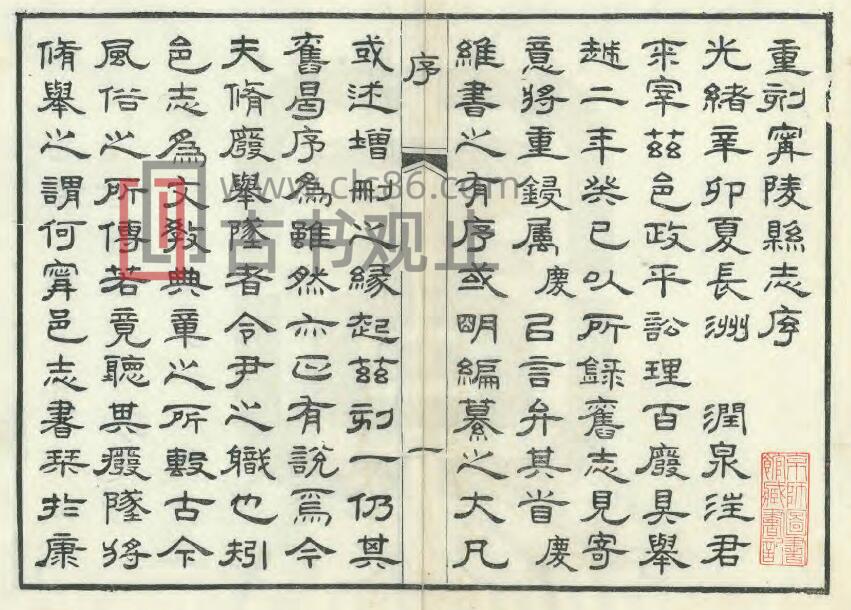 重刻甯陵縣志序
光緒辛卯夏長洲 潤泉汪君
來宰茲邑政平訟理百廢具舉
越二年癸巳以所錄舊志見寄
意將重鋟属慶㠯言弁其首慶
維書之有序或明編纂之大凡
序
一
或述增刪之緣起茲刻一仍其
舊曷序為雖然亦㠯有說焉今
夫脩廢舉墜者令尹之職也矧
邑志為文教典章之所毄古今
風俗之所傳若竟聽其廢墜將
脩舉之謂何甯邑志書栞於康
www.clc86.com
古书观止